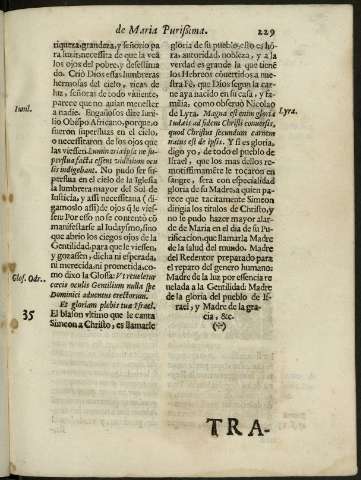 de Maria Purissima. 229
riqueza, grandeza, y señorio pa
ra lucir, necessita de que la veã
los ojos del pobre y desestima
do. Criò Dios essas lumbreras
hermosas del cielo, ricas de
luz, señoras de todo valiente,
parece que no auian menester
a nadie. Engañaisos dize Iuni-
lio Obispo Africano, porque si
fueron superfluas en el cielo,
o necessitaron de los ojos que
las viessen
Iunil.
superflua facta essent
indigebant. No pudo ser su
perflua en el cielo de la Iglesia
la lumbrera mayor del Sol de
Iusticia, y assi necessitana (di
gamoslo assi) de ojos q̃ le vies-
sen: Por esso no se contentò cõ
manifestarse al Iudaysmo, sino
que abrio los ciegos ojos de la
Gentilidad, para que le viessen,
y gozassen, dicha ni esperada,
ni merecida, ni prometida, co-
mo dixo la Glossa: Vt reueletur
Glos. Odr.
cæcis oculis Gentilium nulla spe
Dominici aduentus erectorum.
Et gloriam plebis tuæ Israel.
35
El blason vltimo que le canta
Simeon a Christo, es llamarle
gloria de su pueblo, esto es hõ-
ra, autoridad, nobleza, y a la
verdad es grande la que tienē
los Hebreos cõuertidos a nues-
tra Fè, que Dios segun la car-
ne aya nacido en su casa, y fa-
milia, como obseruò Nicolao
de Lyra. Magna est enim gloria
Lyra.
Iudæis ad fidem Christi conuersis,
quod Christus secundum carnem
natus est de ipsis. Y si es gloria,
digo yo, de todo el pueblo de
Israel, que los mas dellos re-
motissimamẽte le tocarõ en
sangre, sera con especialidad
gloria de su Madre, a quien pa-
rece que tacitamente Simeon
dirigia los titulos de Christo, y
no le pudo hazer mayor alar-
de de Maria en el dia de su Pu-
rificacion, que llamarla Madre
de la salud del mundo. Madre
del Redentor preparado para
el reparo del genero humano:
Madre de la luz por essencia re
uelada a la Gentilidad: Madre
de la gloria del pueblo de Is-
rael, y Madre de la gra-
cia, &c.
TRA-